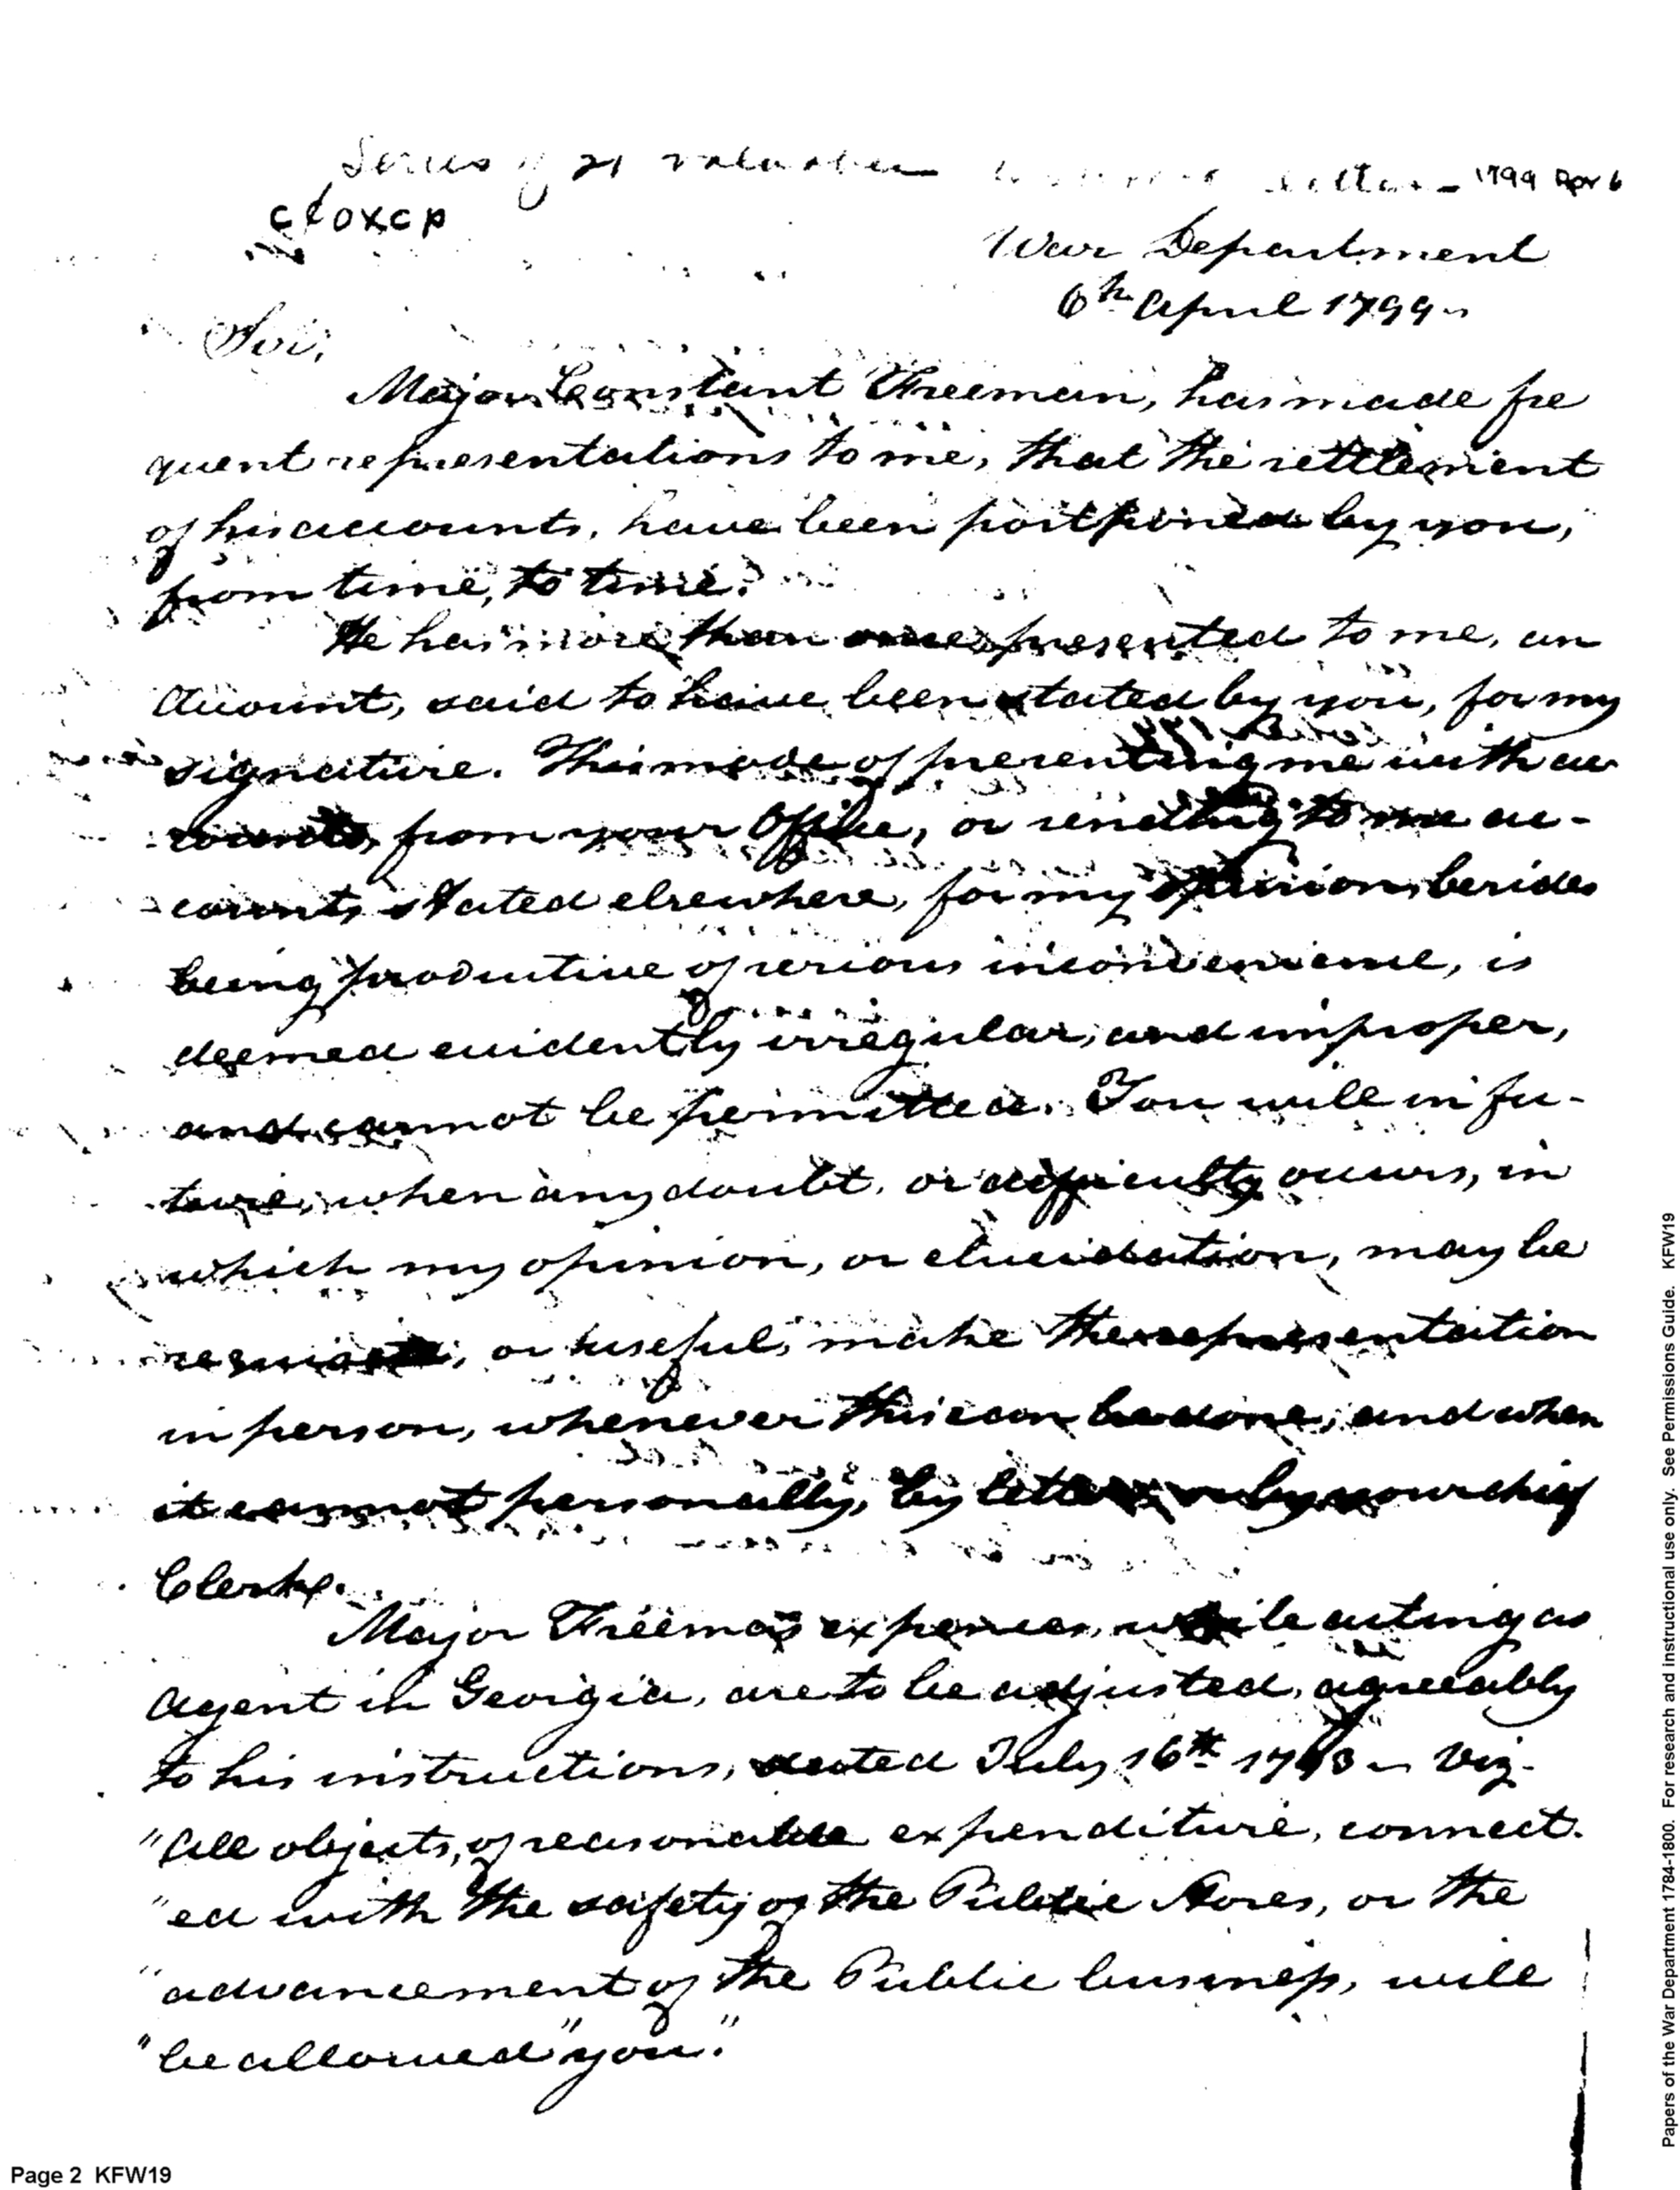 Series of 21 valuable letters - 1799 Apr 6
c¢oxcp
War Department
6th April 1799
Sir,
Major Constant Freeman, has made fre
quent representations to me, that the settlement
of his accounts, have been postponed by you,
from time, to time.
He has more than once presented to me, an
account, said to have been stated by you, for my
signature. This mode of presenting me with ac
counts, from your Office, or sending to me ac-
counts stated elsewhere, for my opinion, besides
being productive of serious inconvenience, is
deemed evidently irregular, and improper,
and cannot be permitted. You will in fu-
ture, when any doubt, or difficulty occurs, in
which my opinion, or elucidation, may be
requisite, or useful, make the representation
in person, whenever this can be done, and when
it cannot personally, by letter, or by your chief
Clerk.
Major Freeman's expences, while acting as
Agent in Georgia, are to be adjusted, agreeably
to his instructions, dated July 16th 1793 viz.
"All objects, of reasonable expenditure, connect.
"ed with the safety of the Public Stores, or the
"advancement of the Public business, will
"be allowed "you."
Page 2 KFW19
Papers of the War Department 1784-1800. For research and instructional use only. See Permissions Guide. KFW19